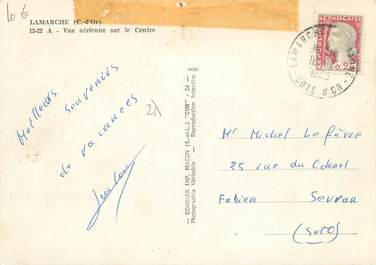 10 €
LAMARCHE (C.-d'Or)
13-22 A - Vue aérienne sur le Centre
LAMARCHE
COTE D'OR
Meilleurs souvenirs
de vacances
COMBIER IMP. MACON (S.-et-L.) "CIM"
Photographie Véritable - Reproduction Interdite
Mr Michel Lefèvre
25 rue du Colonel
Fabien Sevran
(S et O)